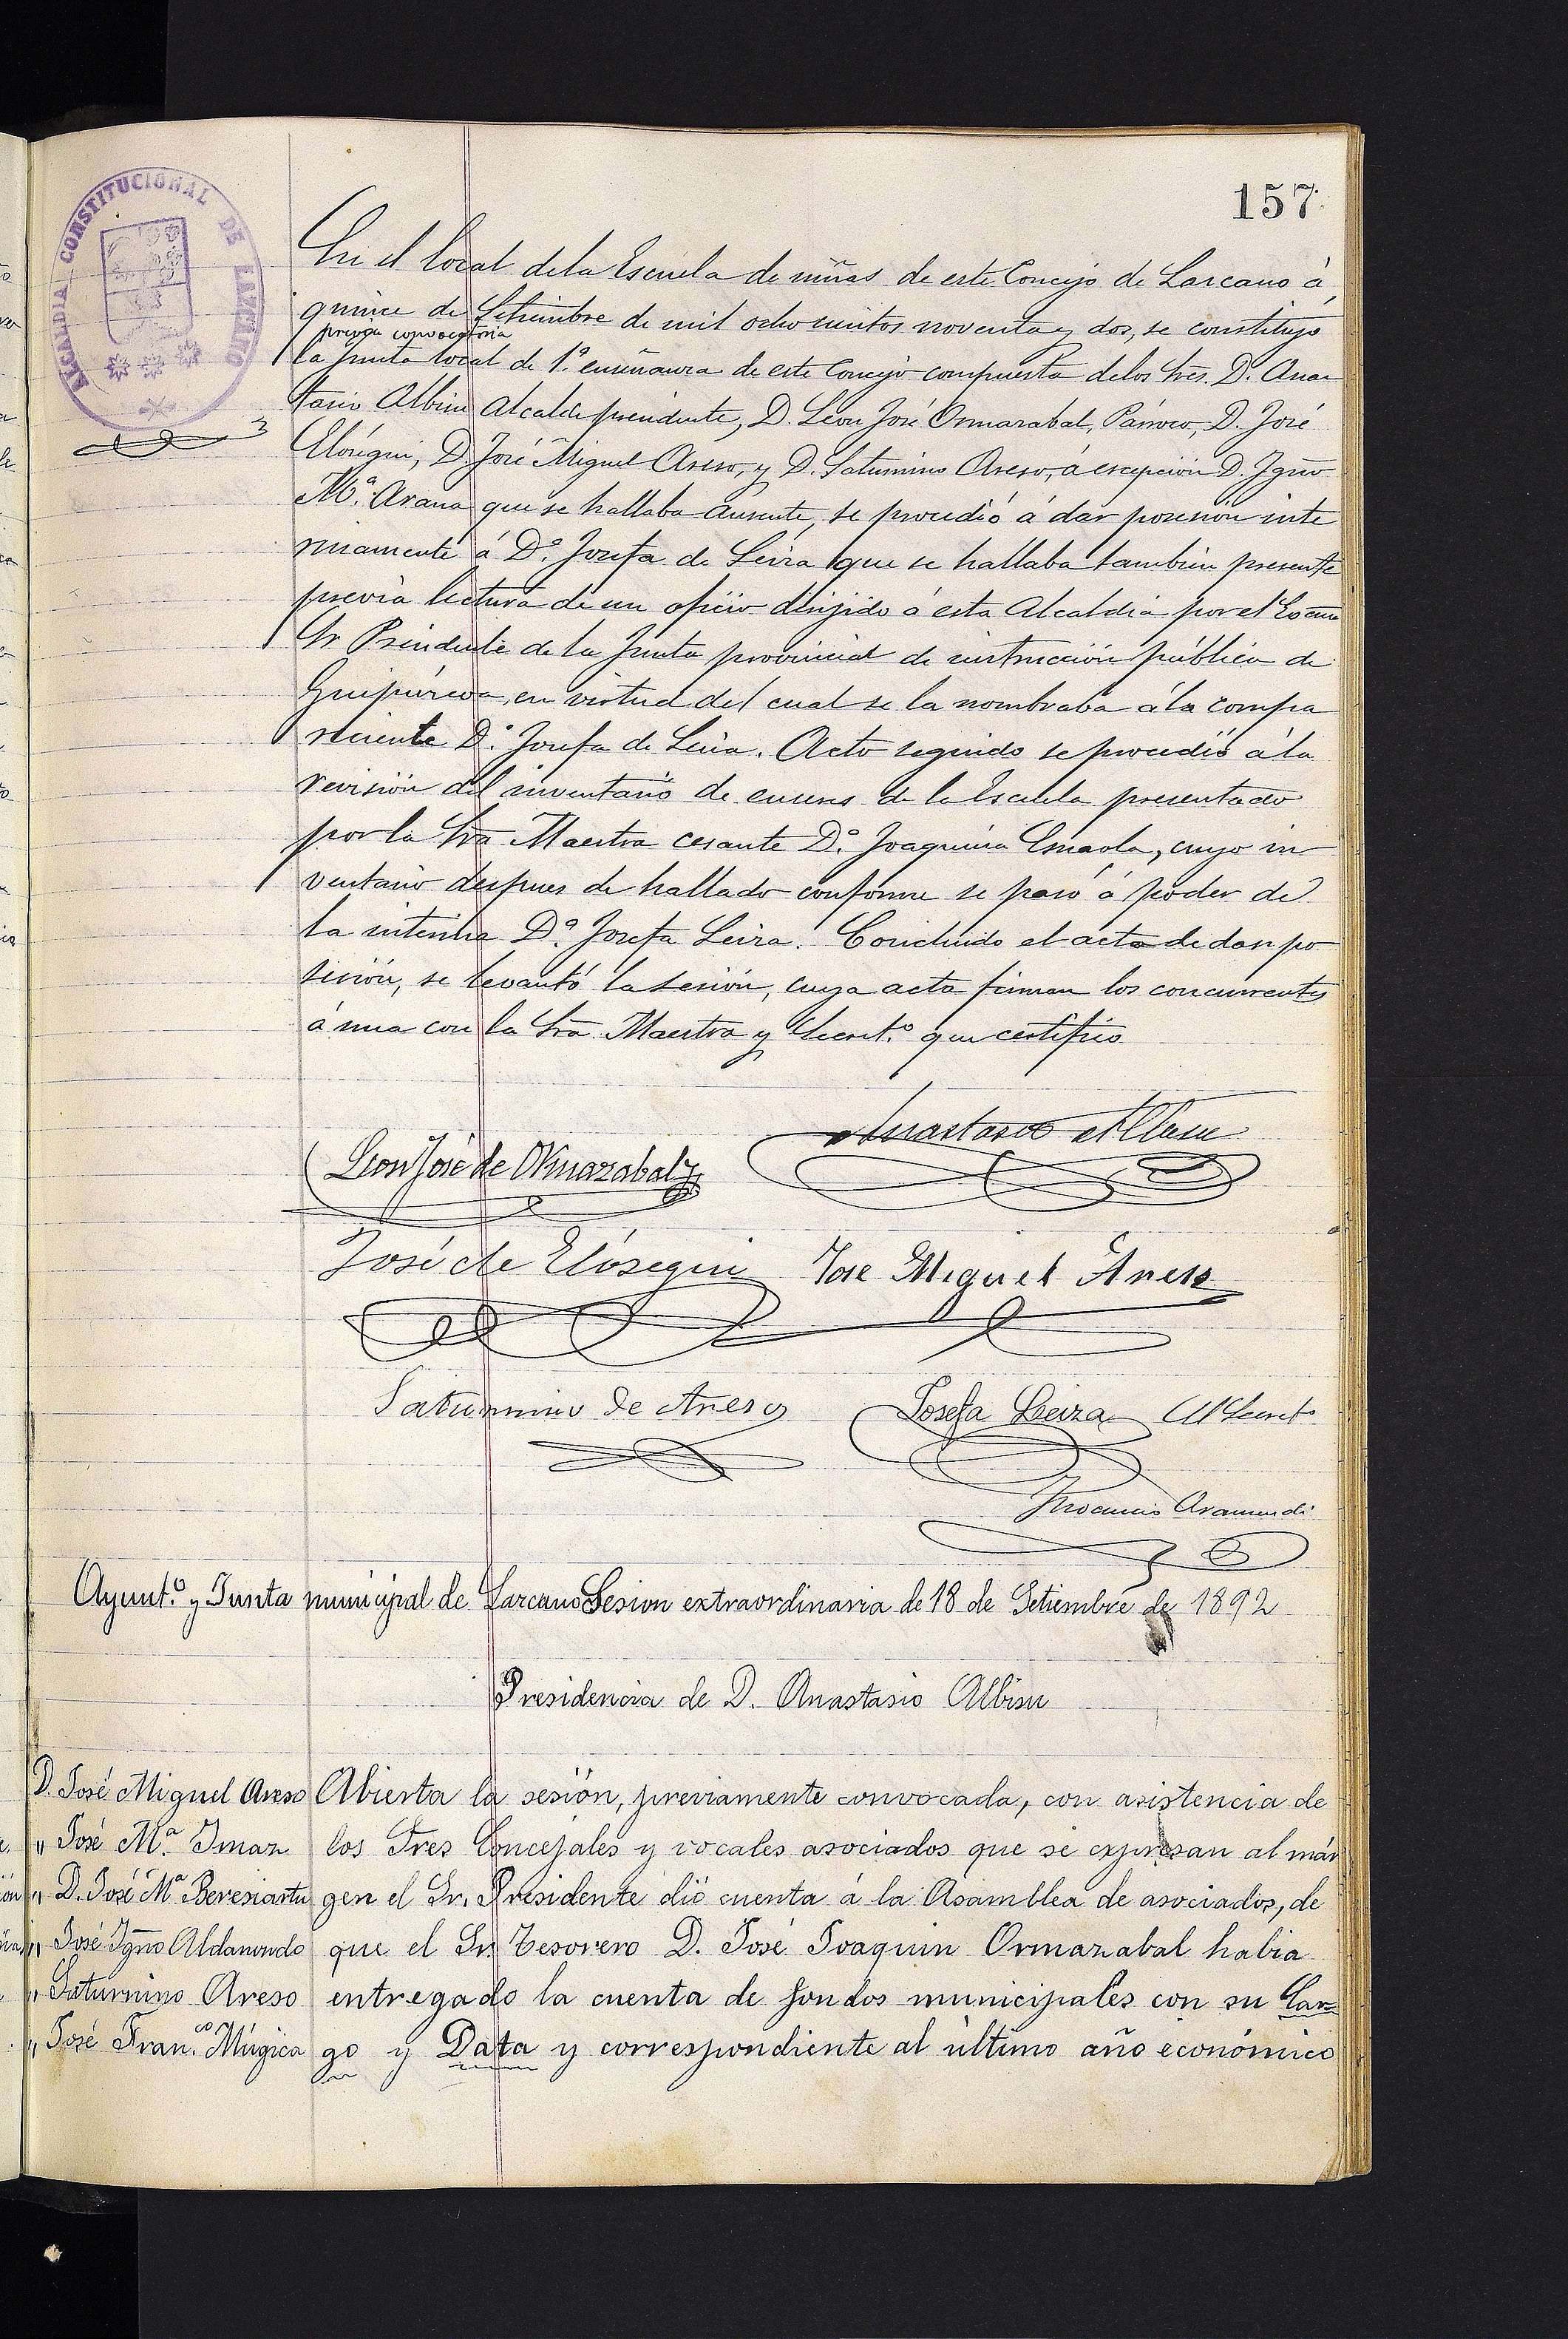 157
ALCALDIA CONSTITUCIONAL DE LAZCANO
En el local de la Escuela de niñas de este Concejo de Lazcano á
quince de Setiembre de mil ochocientos noventa y dos, se constituyó
previa convocatoria
la Junta local de 1.ª enseñanza de este Concejo compuesta de los Sres. D. Anas
tasio Albisu Alcalde presidente, D. Leon José Ormazabal, Párroco, D. José
Elósegui, D. José Miguel Areso, y D. Saturnino Areso, á escepcion D. Ygnº
M.ª Arana que se hallaba ausente, se procedió á dar posesion inte
rinamente á D.ª Josefa de Leiza que se hallaba tambien presente
previa lectura de un oficio dirijido á esta Alcaldia por el Escmo
Sr Presidente de la Junta provincial de instrucción pública de
Guipúzcoa, en virtud del cual se la nombraba á la compa
reciente D.ª Josefa de Leiza. Acto seguido se procedió á la
revisión del inventario de enseres de la Escuela presentado
por la Sra Maestra cesante D.ª Joaquina Esnaola, cuyo in
ventario despues de hallado conforme se pasó á poder de
la interina D.ª Josefa Leiza. Concluido el acto de dar po
sesión, se levantó la sesión, cuya acta firman los concurrentes
á una con la Sra Maestra y Secret.º que certifico
Anastasio Albisu
Leon José de Ormazabal
José de Elósegui Jose Miguel Areso
Saturnino de Areso Josefa Leiza El Secret.º
Inocencio Aramendi
Ayunt.º y Junta municipal de Lazcano Sesion extraordinaria de 18 de Setiembre de 1892
Presidencia de D. Anastasio Albisu
D. José Miguel Areso
" José M.ª Imaz
" D. José M.ª Beresiartu
" José Ygnº Aldanondo
" Saturnino Areso
" José Fran.co Múgica
Abierta la sesión, previamente convocada, con asistencia de
los Sres Concejales y vocales asociados que se expresan al már
gen el Sr. Presidente dió cuenta á la Asamblea de asociados, de
que el Sr. Tesorero D. José Joaquin Ormazabal habia
entregado la cuenta de fondos municipales con su Car=
go y Data y correspondiente al último año económico